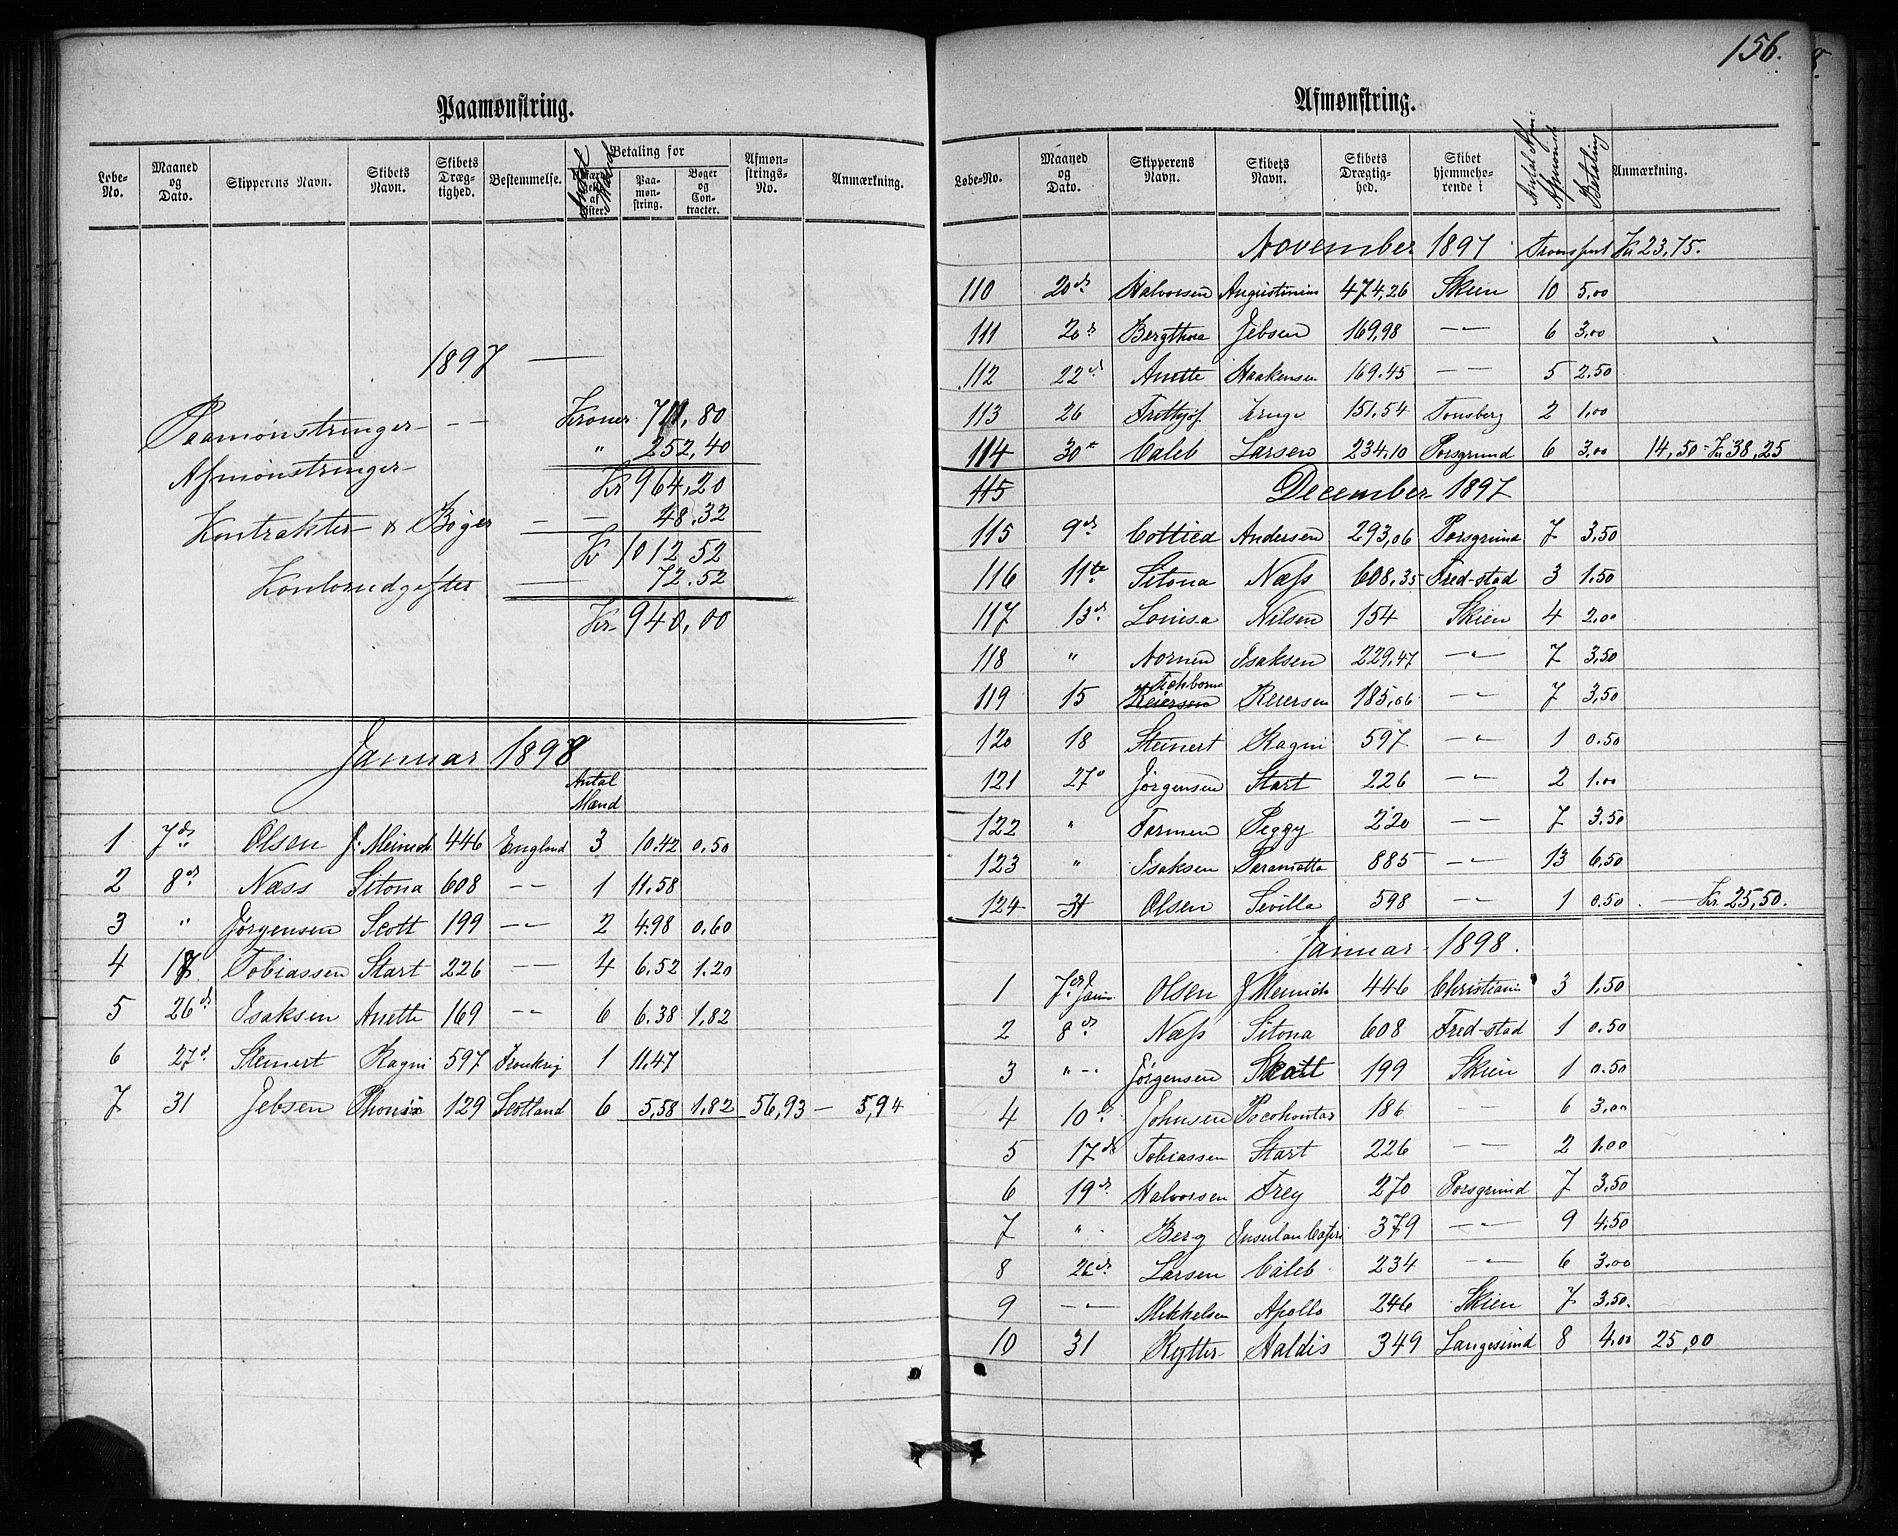 Paamønstring.
Løbe-No. Maaned og Dato. Skipperens Navn. Skibets Navn. Skibets Drægtighed. Bestemmelse. Antal Mand Betaling for Paamønstring. Bøger og Contracter. Afmønstrings-No. Anmærkning.
1897 —
Paamønstringer — — Kroner 711,80
Afmønstringer " 252,40
Kr 964,20
Kontrakter & Bøger — — 48.32
Kr 1012.52
Kontorudgifter — 72.52
Kr 940,00
Januar 1898
Antal Mænd
1 7de Olsen J. Meinich 446 England 3 10.42 0.50
2 8de Næss Sitona 608 —"— 1 11.58
3 " Jørgensen Scott 199 —"— 2 4.98 0.60
4 17 Tobiassen Start 226 —"— 4 6.52 1.20
5 26de Isaksen Anette 169 —"— 6 6.38 1,82
6 27de Steinert Ragni 597 Frankrig 1 11.47
7 31 Jebsen 129 Scotland 6 5,58 1,82 56,93 — 5,94
156.
Afmønstring.
Løbe-No. Maaned og Dato. Skipperens Navn. Skibets Navn. Skibets Drægtighed. Skibet hjemmehørende i Antal Betaling Anmærkning.
November 1897 Transport Kr 23,75.
110 20de Halvorsen Augustinius 474,26 Skien 10 5,00
111 20de Bergthora Jebsen 169,98 —"— 6 3,00
112 22de Anette Haakensen 169.45 —"— 5 2.50
113 26 Frithjof Kruge 151.54 Tønsberg 2 1,00
114 30te Caleb Larsen 234.10 Porsgrund 6 3,00 14,50 - Kr 38,25
115 December 1897
115 9de Gottlied Andersen 293,06 Porsgrund 7 3.50
116 11te Sitona Næss 608.35 Fred-stad 3 1.50
117 13de Lovisa Nilsen 154 Skien 4 2.00
118 " Nornen Isaksen 229.47 —"— 7 3,50
119 15 Reiersen Tichborne Reiersen 185,06 —"— 7 3,50
120 18 Steinert Ragni 597 —"— 1 0.50
121 27de Jørgensen Start 226 —"— 2 1.00
122 " Tormen Peggy 220 —"— 7 3.50
123 " Isaksen Paramatta 885 —"— 13 6,50
124 31 Olsen Sevilla 598 —"— 1 0.50 . — Kr. 25,50.
Januar 1898.
1 7de Janu. Olsen J Meinich 446 Christiania 3 1.50
2 8de Næss Sitona 608 Fred-stad 1 0.50
3 "—. Jørgensen Skott 199 Skien 1 0.50
4 10de Johnsen Pocohontas 186 —"— 6 3,00
5 17de Tobiassen Start 226 —"— 2 1.00
6 19de Halvorsen Frey 270 Porsgrund 7 3.50
7 " Berg Insulan Capri 379 —"— 9 4.50
8 26de Larsen Caleb 234 —"— 6 3.00
9 —"— Mikkelsen Apollo 246 Skien 7 3,50.
10 31 Rytter Haldis 349 Langesund 8 4.00 25,00